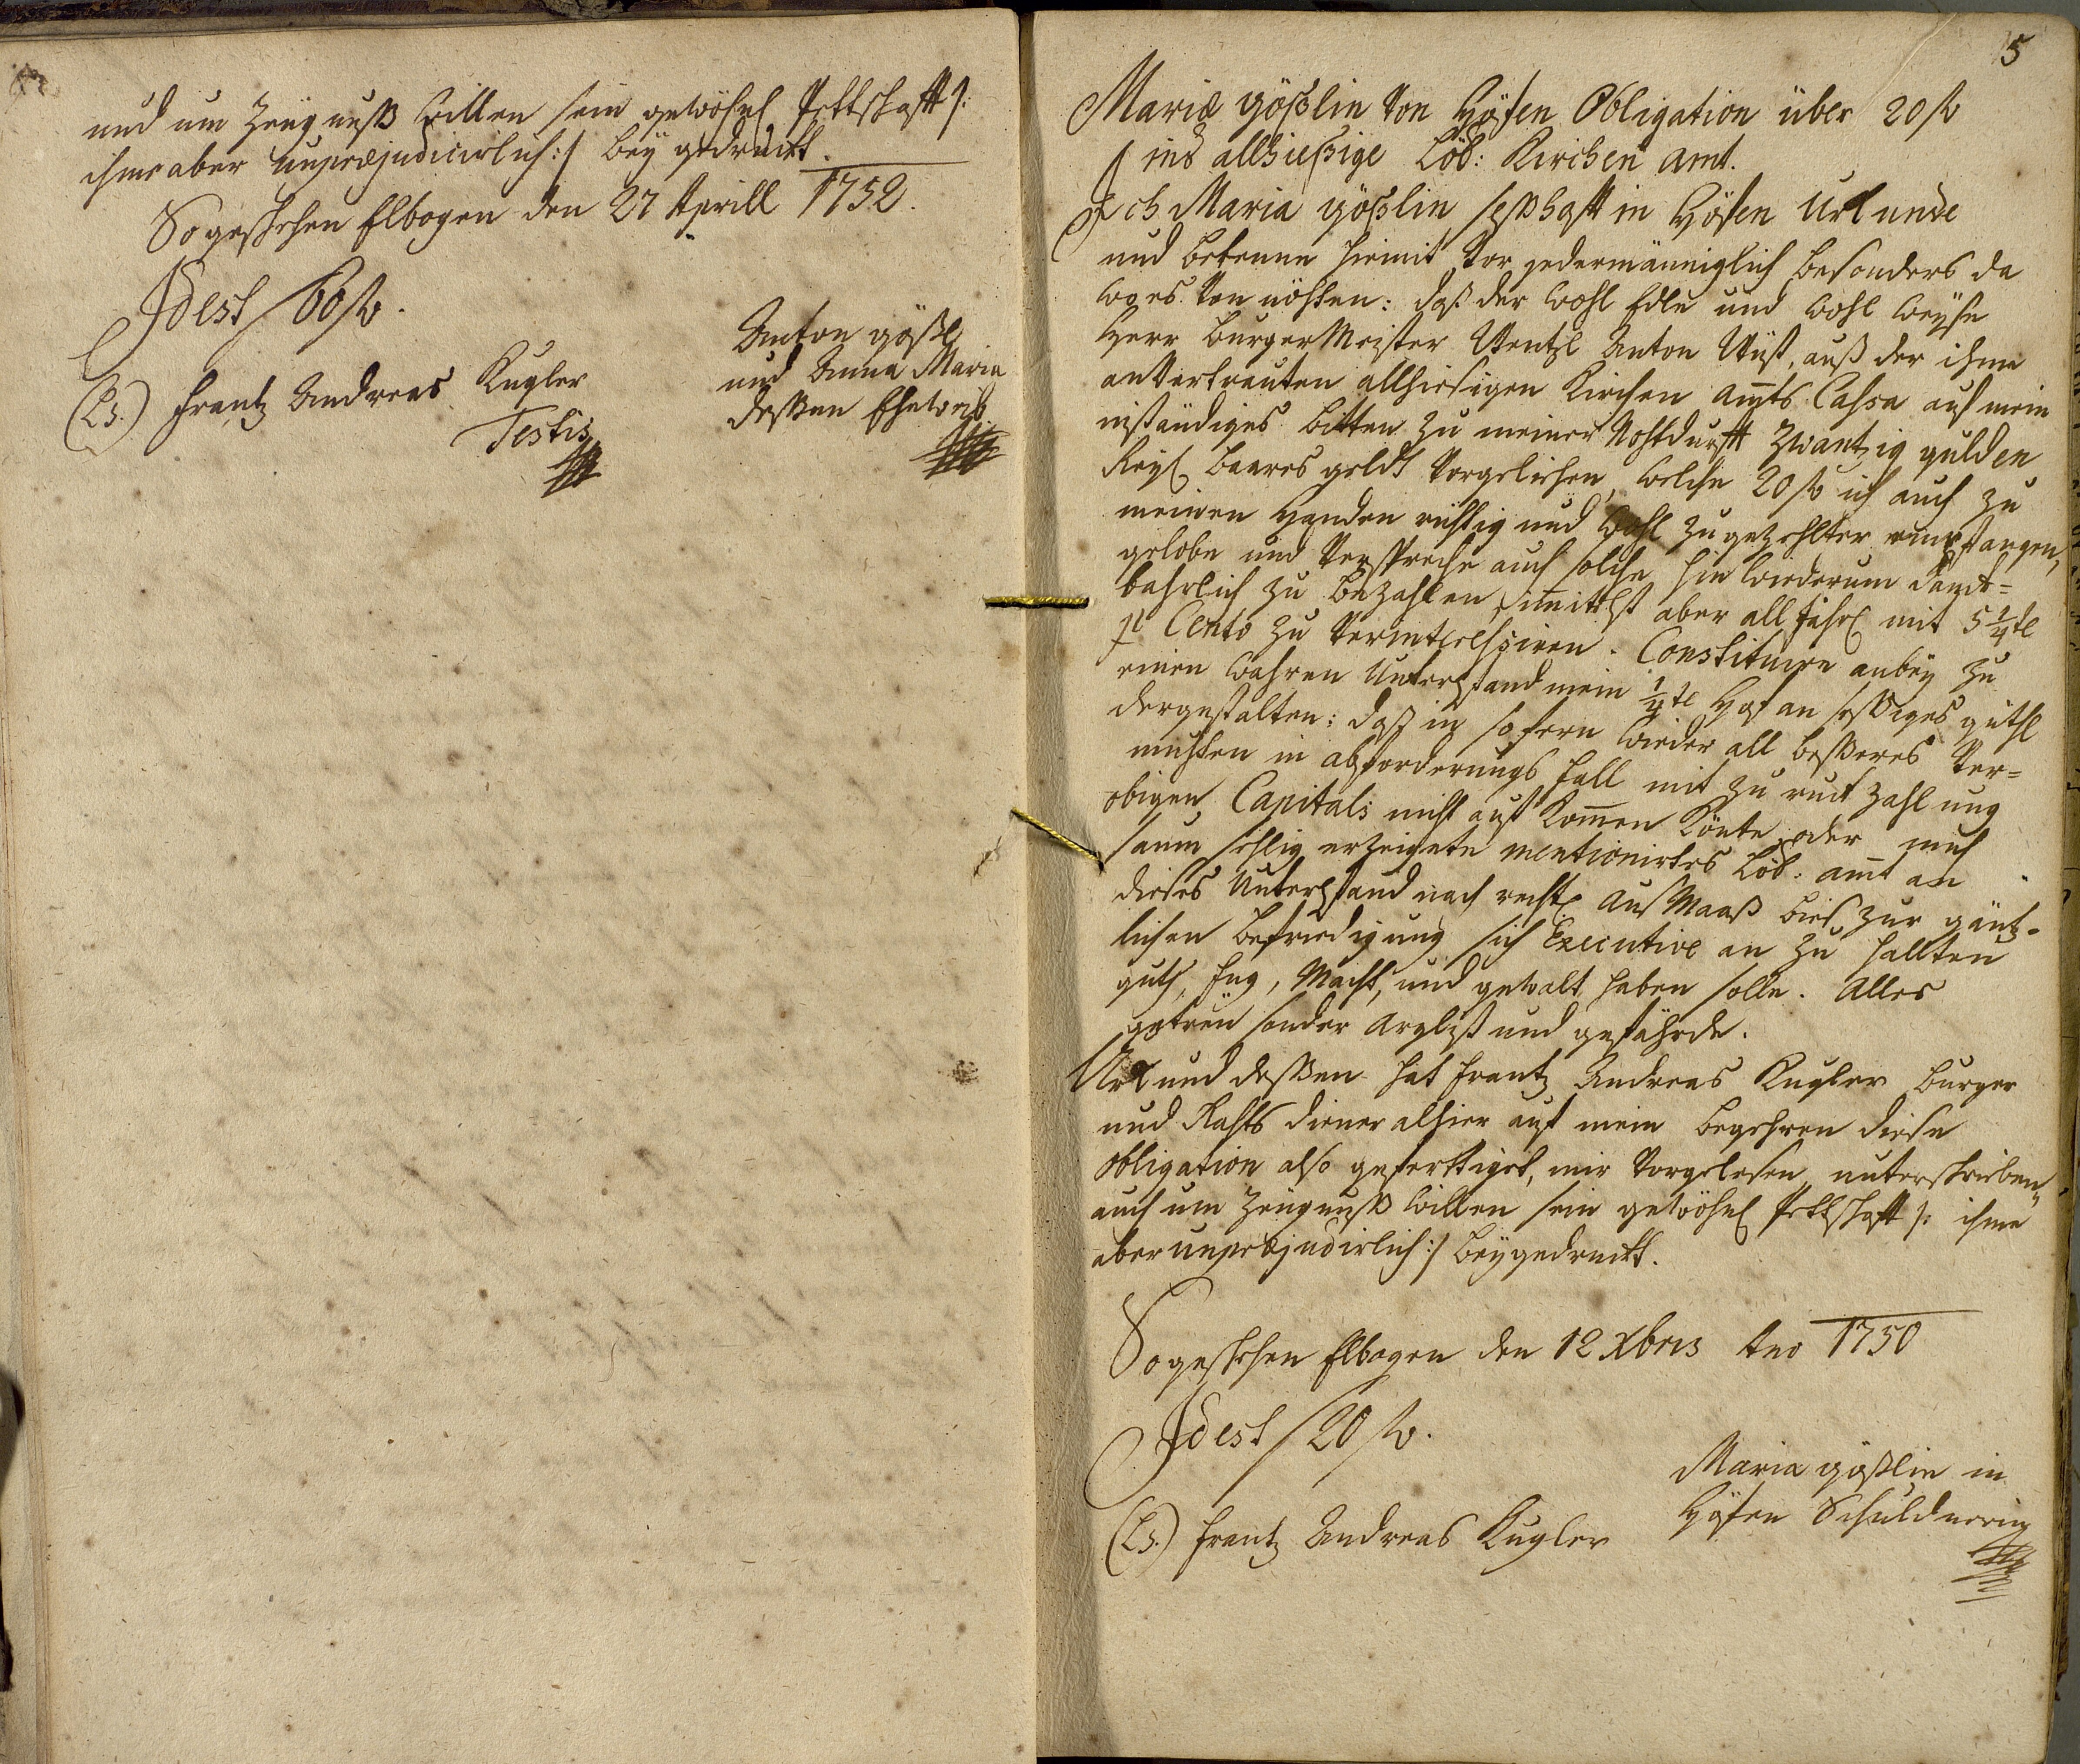 und um Zeügnuß willen sein gewöhnl Pettschafft /:
ihme aber unpræjudicirlich :/ bey gedruckt.
So geschehen Elbogen den 27 Aprill 1752.
Idest / 60 f.
Anton gößl
und Anna Maria
deßen Eheweib
(Ls.) Frantz Andreas Kugler
Testis
5
Mariæ gößlin von Höfen Obligation über 20 f
ins allhießige Löb: Kirchen amt.
Ich Maria gößlin seßhafft in Höfen Urkunde
und bekenne hiemit vor jedermänniglich besonders da
wo es von nöhten: daß der wohl Edle und wohl weyse
Herr BurgerMeister Wentzl Anton Wüst, auß der ihme
anvertrauten allhiesigen Kirchen amts Cassa auf mein
inständiges bitten zu meiner Nohtdurfft Zwantzig gulden
Reyl baares geldt vorgeliehen, welche 20 f ich auch zu
meinen Handen richtig und wohl zugezehlter empfangen,
gelobe und verspreche auch solche hin wiederum danck=
bahrlich zu bezahlen, immittelst aber all jährl mit 5 1/4tl
p Cento zu verinteressiren. Constituire anbey zu
einen wahren Unterpfand mein 1/4tl Hof an seßiges güthl
dergestalten: daß in sofern wieder all beßeres ver=
muhten in abforderungs fall mit zu ruck zahlung
obigen Capitals nicht auf kommen könte, oder mich
saumsehlig erzeigete mentionirtes Löb: amt an
dieses Unterpfand nach rechtl Aus Maaß bies zur gäntz=
lichen befriedigung sich Executive an zu hallten
guth, fug, Macht, und gewalt haben solle. Alles
getreu sonder Arglist und gefährde.
Urkund deßen hat Frantz Andreas Kugler burger
und Rahts diener alhier auf mein begehren diese
obligation also gefertiget, mir vorgelesen, unterschrieben,
auch um Zeügnuß willen sein gewöhnl Pettschafft /: ihme
aber unpræjudirlich :/ beygedruckt.
So geschehen Elbogen den 12 Xbris Ano 1750
Idest / 20 f.
Maria gößlin in
Höfen Schuldnerin
(Ls.) Frantz Andreas Kugler